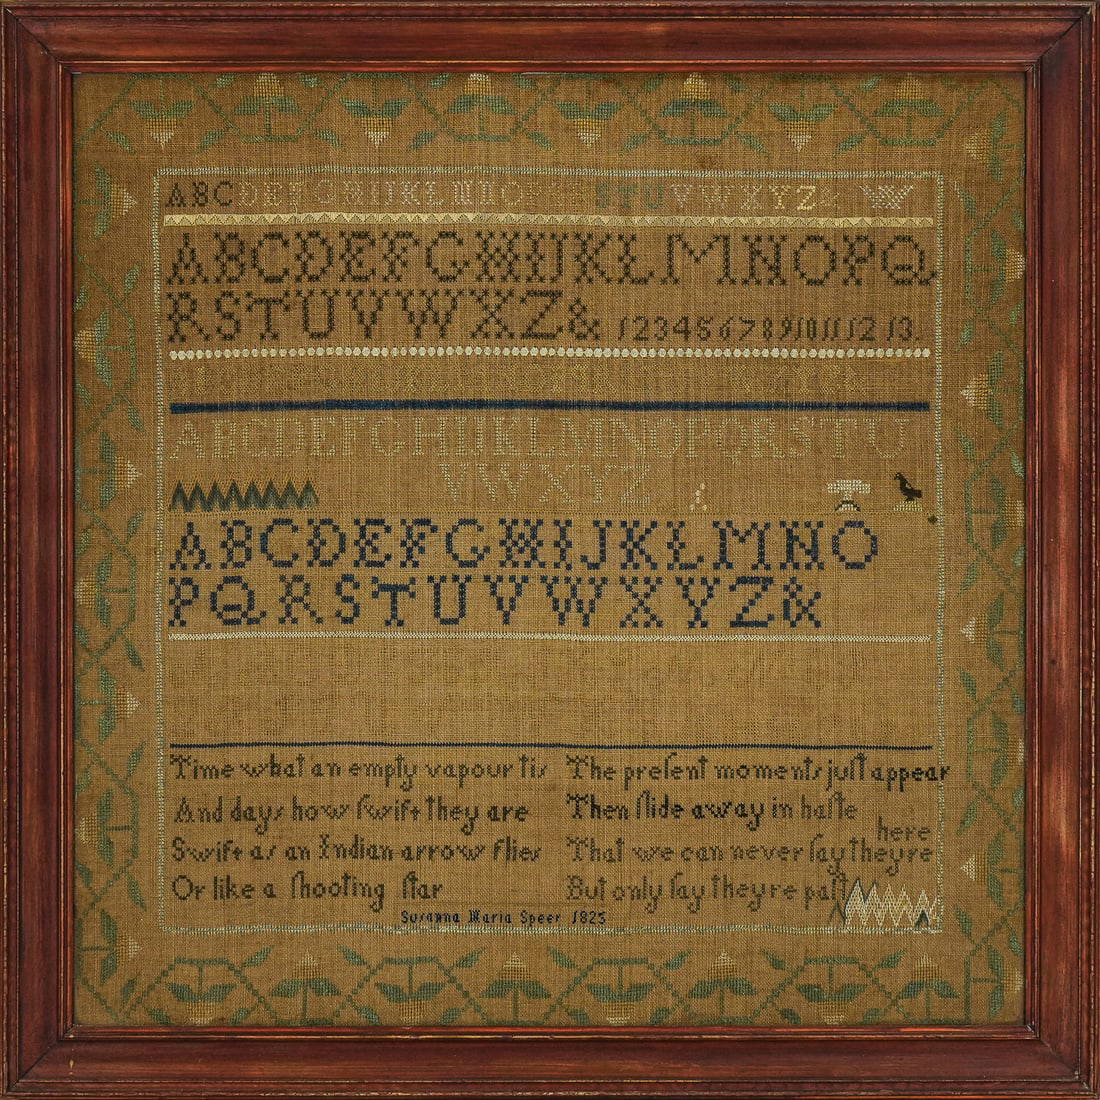 ABCDEFGHIJKLMNOPQRSTUVWXYZ& W
ABCDEFGHIJKLMNOPQ
RSTUVWXZ& 12345678910111213.
ABCDEFGHIJKLMNOPQRSTU
VWXYZ
ABCDEFGHIJKLMNO
PQRSTUVWXYZ&
Time what an empty vapour tis
And days how ſwift they are
Swift as an Indian arrow flies
Or like a ſhooting ſtar
The preſent moments juſt appear
Then ſlide away in haſte
That we can never ſay theyre here
But only ſay theyre paſt
Susanna Maria Speer 1825